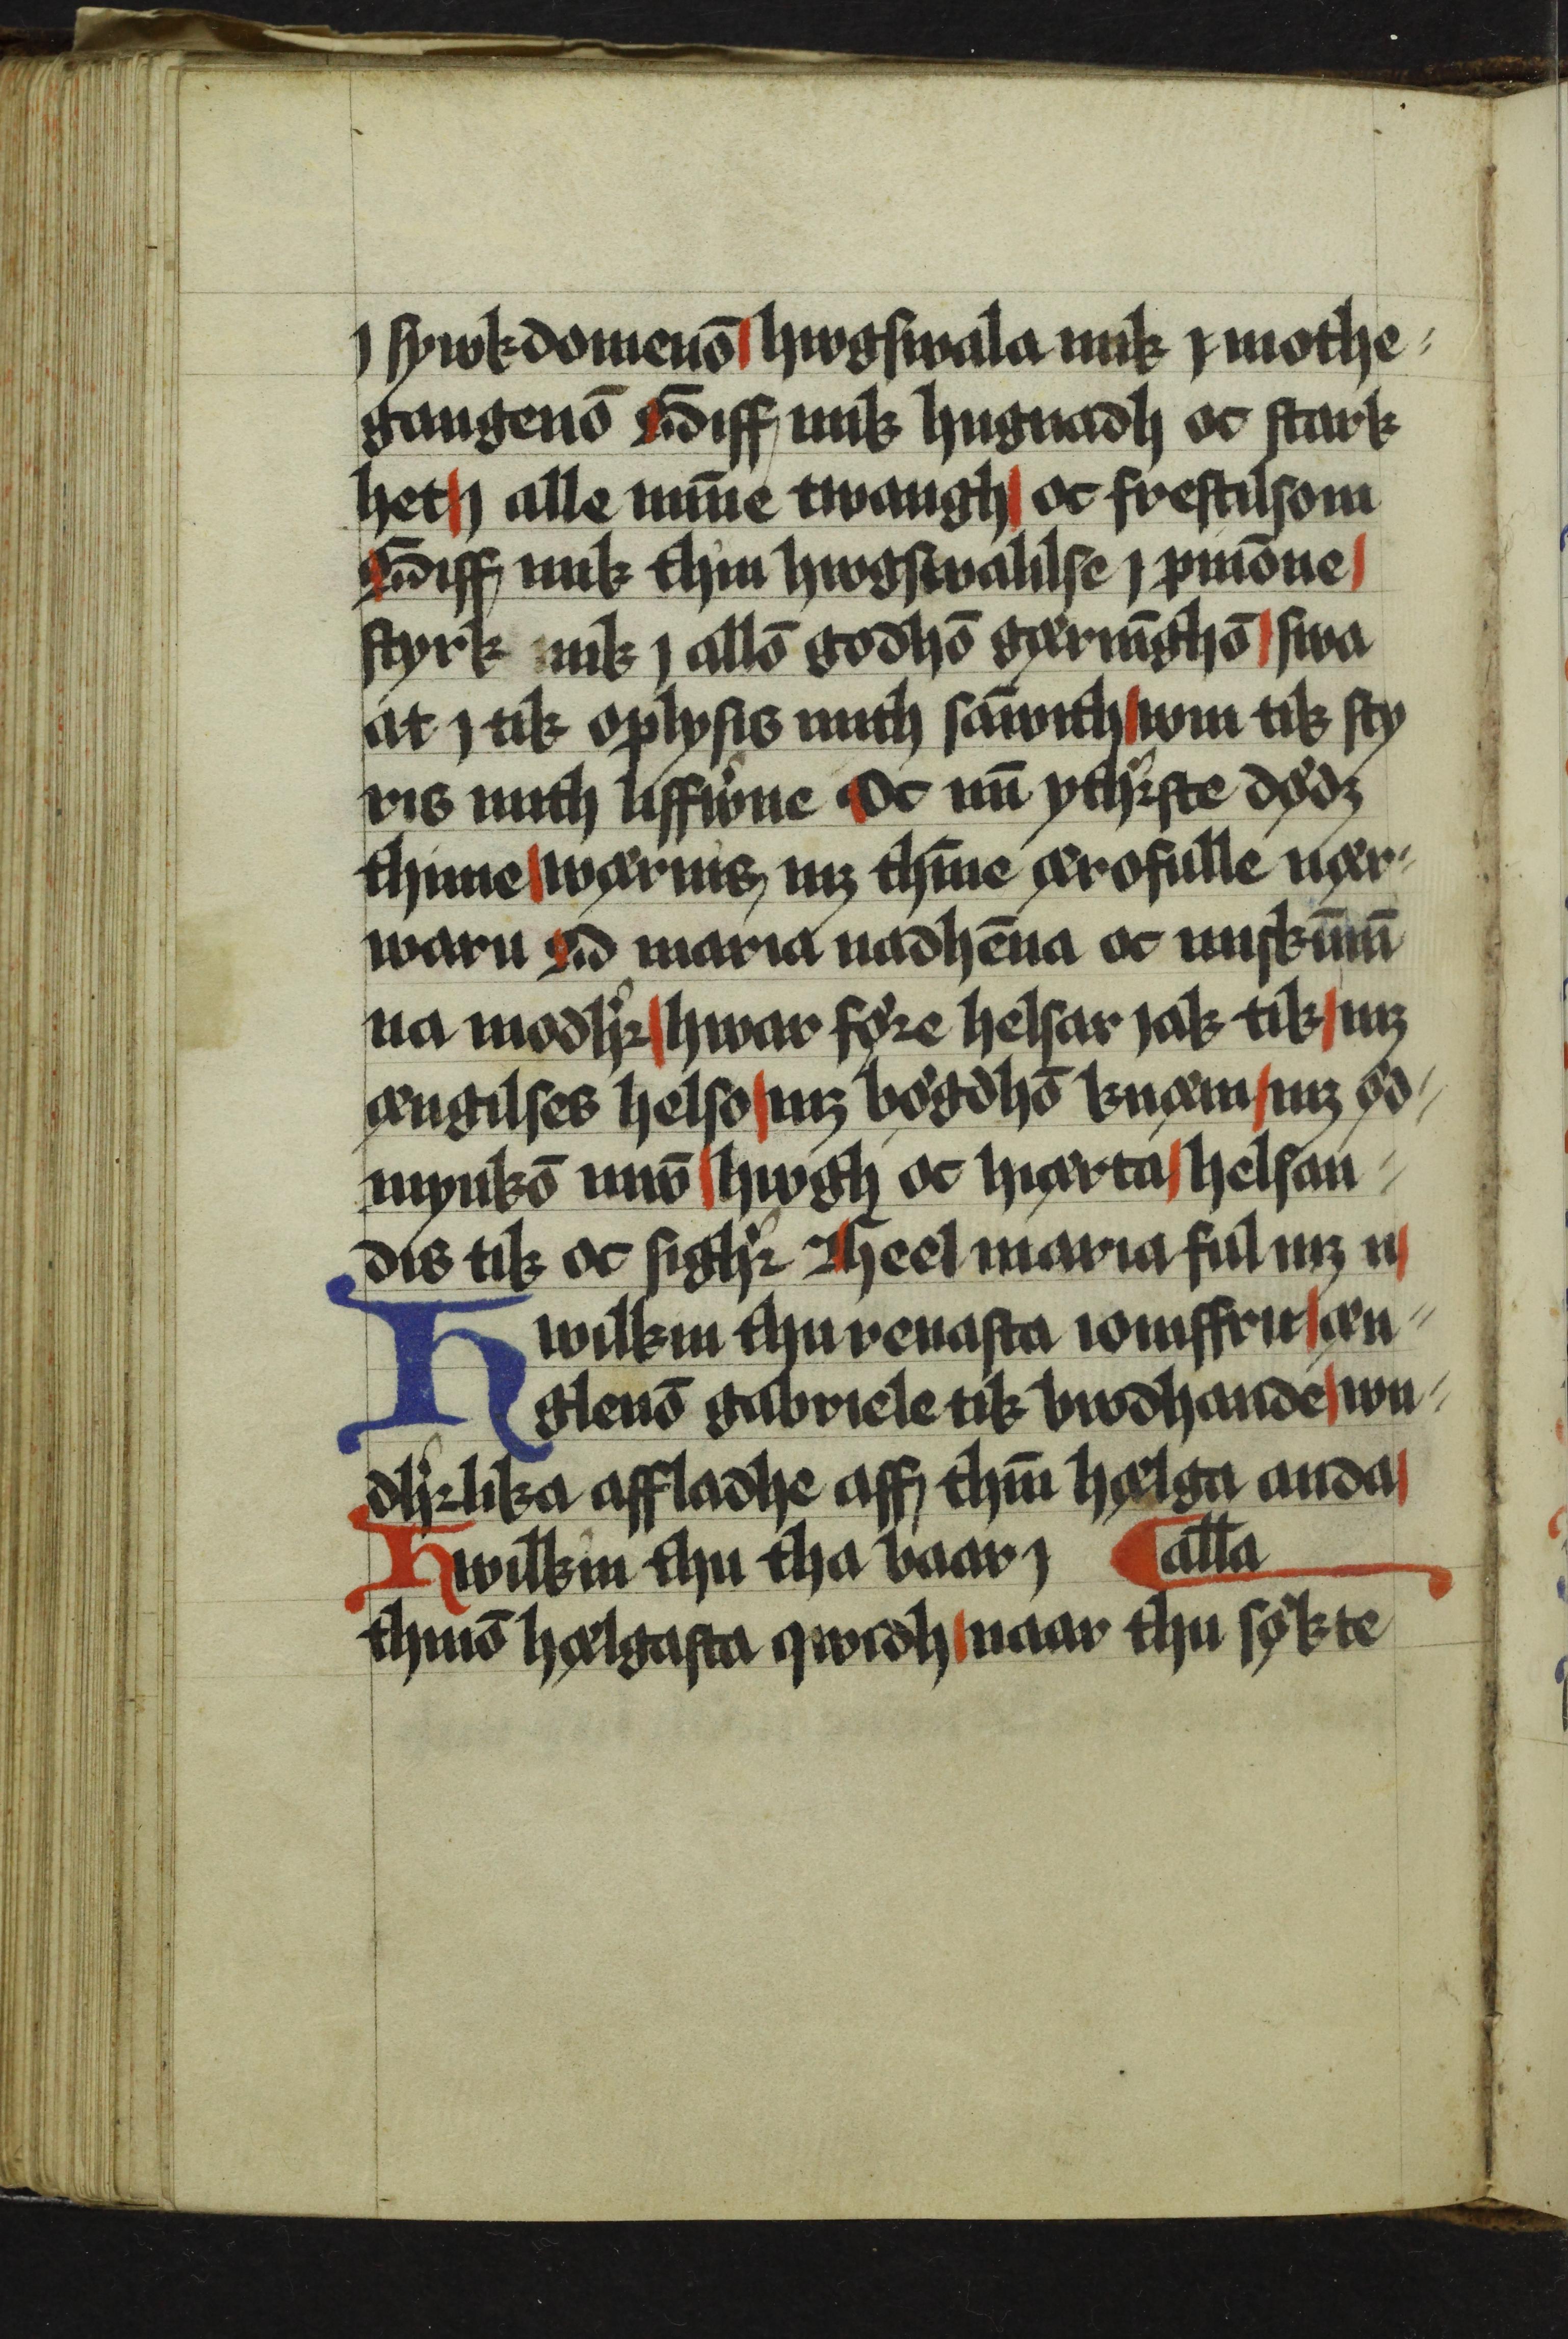 j sywkdomenō hwgswala mik j mothe-
gangenō Giff mik hugnadh oc stark
het j alle mīne twangh oc frestilsom
Giff mik thin hwgswalilse j pinōne
styrk mik j allō godhō gærnīghō swa
at j tik oplysis mith sāwith wm tik sty
ris mith liffw̄ne Oc mī ythʳste dødz
thime wærnis mz thīne ærofulle nær-
waru O maria nadhēna oc miskūnū
na modhʳ hwar føre helsar jak tik mz
ængilses helso mz bøgdhō knæm mz ød-
mynkō mw̄ hwgh oc hiærta helsan-
dis tik oc sighʳ Heel maria ful mz n
Hwilkin thu renasta iomffru æn-
glenō gabriele tik bwdhande wn-
dhʳlika affladhe aff thī hælga anda
Hwilkin thu tha baar j
alla
thinō hælgasta qwidh naar thu søkte